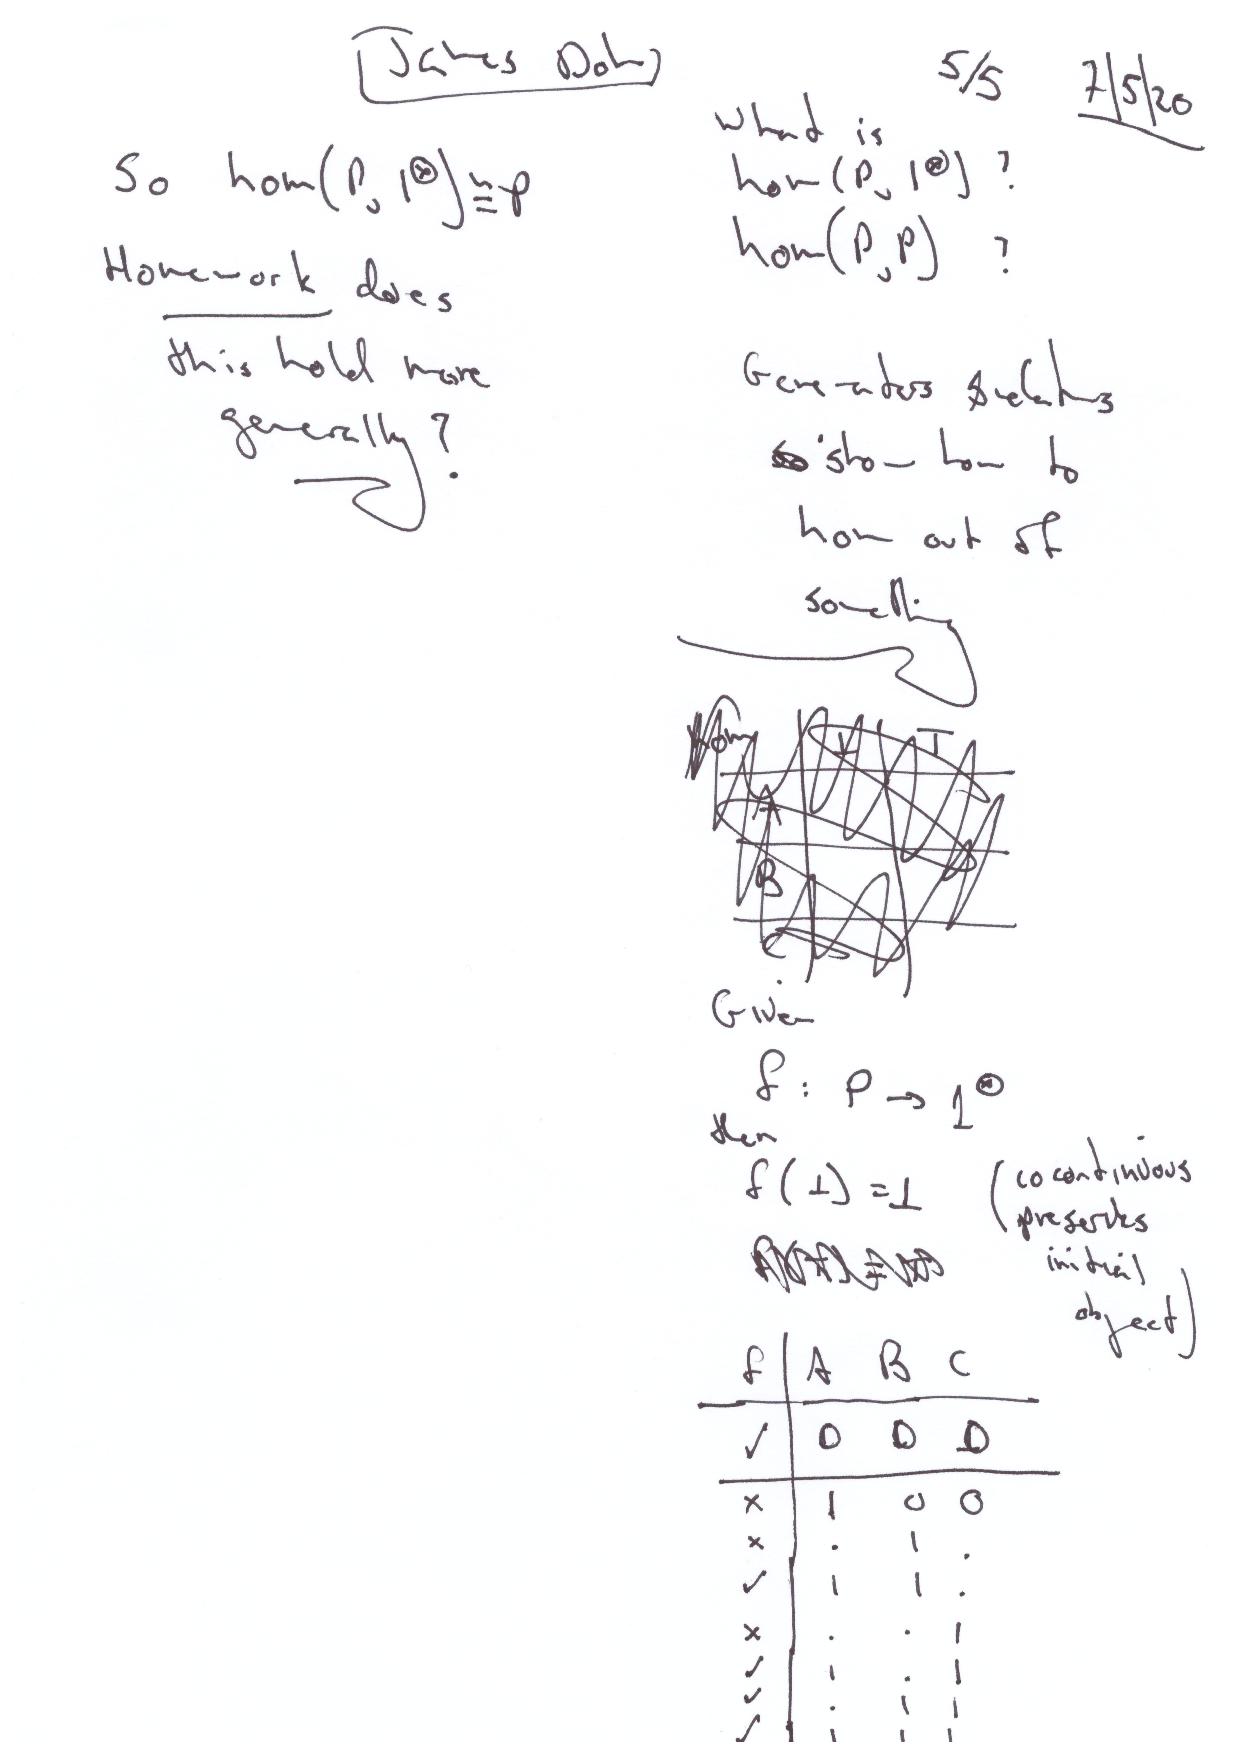 James Dolan
5/5 7/5/20
So hom(P, 1^⊗) ≅ P
Homework does
this hold more
generally?
What is
hom(P, 1^⊗) ?
hom(P, P) ?
Generators & relations
show how to
hom out of
something
Given
f : P → 1^⊗
then
f(⊥) = ⊥
(cocontinuous
preserves
initial
object)
f | A B C
✓ | 0 0 0
× | 1 0 0
× | . 1 .
✓ | 1 1 .
× | . . 1
✓ | 1 . 1
✓ | . 1 1
✓ | 1 1 1